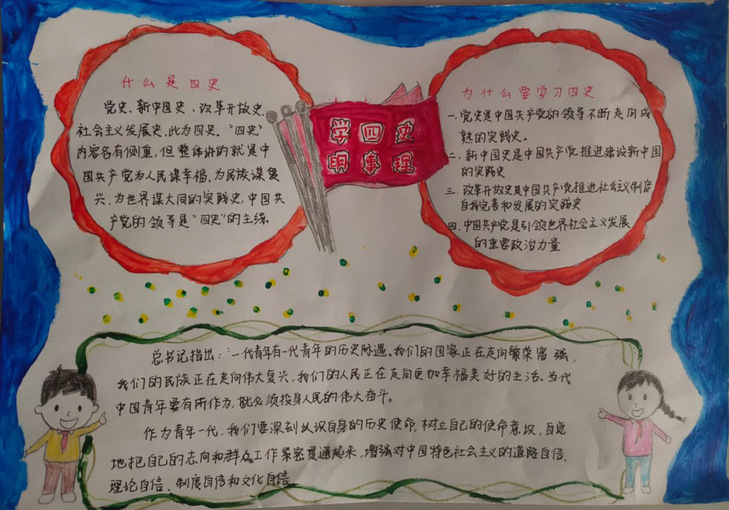 什么是四史
党史、新中国史、改革开放史、
社会主义发展史,此为四史。“四史”
内容各有侧重,但整体讲的就是中
国共产党为人民谋幸福,为民族谋复
兴、为世界谋大同的实践史,中国共
产党的领导是“四史”的主线。
学四史
明事理
为什么要学习四史
一、党史是中国共产党的领导不断走向成
熟的实践史。
二、新中国史是中国共产党推进建设新中国
的实践史
三、改革开放史是中国共产党推进社会主义制度
自我完善和发展的实践史
四、中国共产党是引领世界社会主义发展
的重要政治力量
总书记指出:“一代青年有一代青年的历史际遇。我们的国家正在走向繁荣富强,
我们的民族正在走向伟大复兴,我们的人民正在走向更加幸福美好的生活。当代
中国青年要有所作为,就必须投身人民的伟大奋斗。
作为青年一代,我们要深刻认识自身的历史使命,树立自己的使命意识,自觉
地把自己的志向和群众工作紧密贯通起来,增强对中国特色社会主义的道路自信、
理论自信、制度自信和文化自信